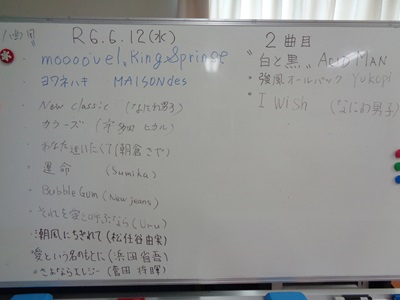 1曲目
R6.6.12(水)
moooove!. King&Springe
ヨワネハキ MAISONdes
New classic (なにわ男子)
カラーズ (宇多田 ヒカル)
あなたに逢いたくて(朝倉さや)
運命 (Sumika)
BubbleGum (New jeans)
それを愛と呼ぶなら(Uru)
潮風にちぎれて(松任谷由実)
愛という名のもとに(浜田省吾)
さよならエレジー(菅田 将暉)
2曲目
"白と黒" ACIDMAN
"強風オールバック Yukopi
"I Wish (なにわ男子)